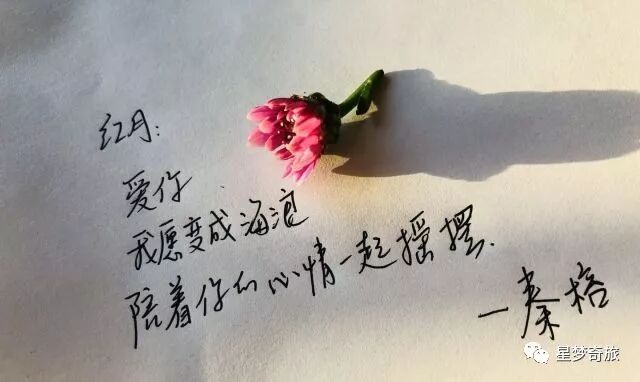 红月:
爱你
我愿变成海浪
陪着你的心情一起摇摆.
—秦格
星梦奇旅